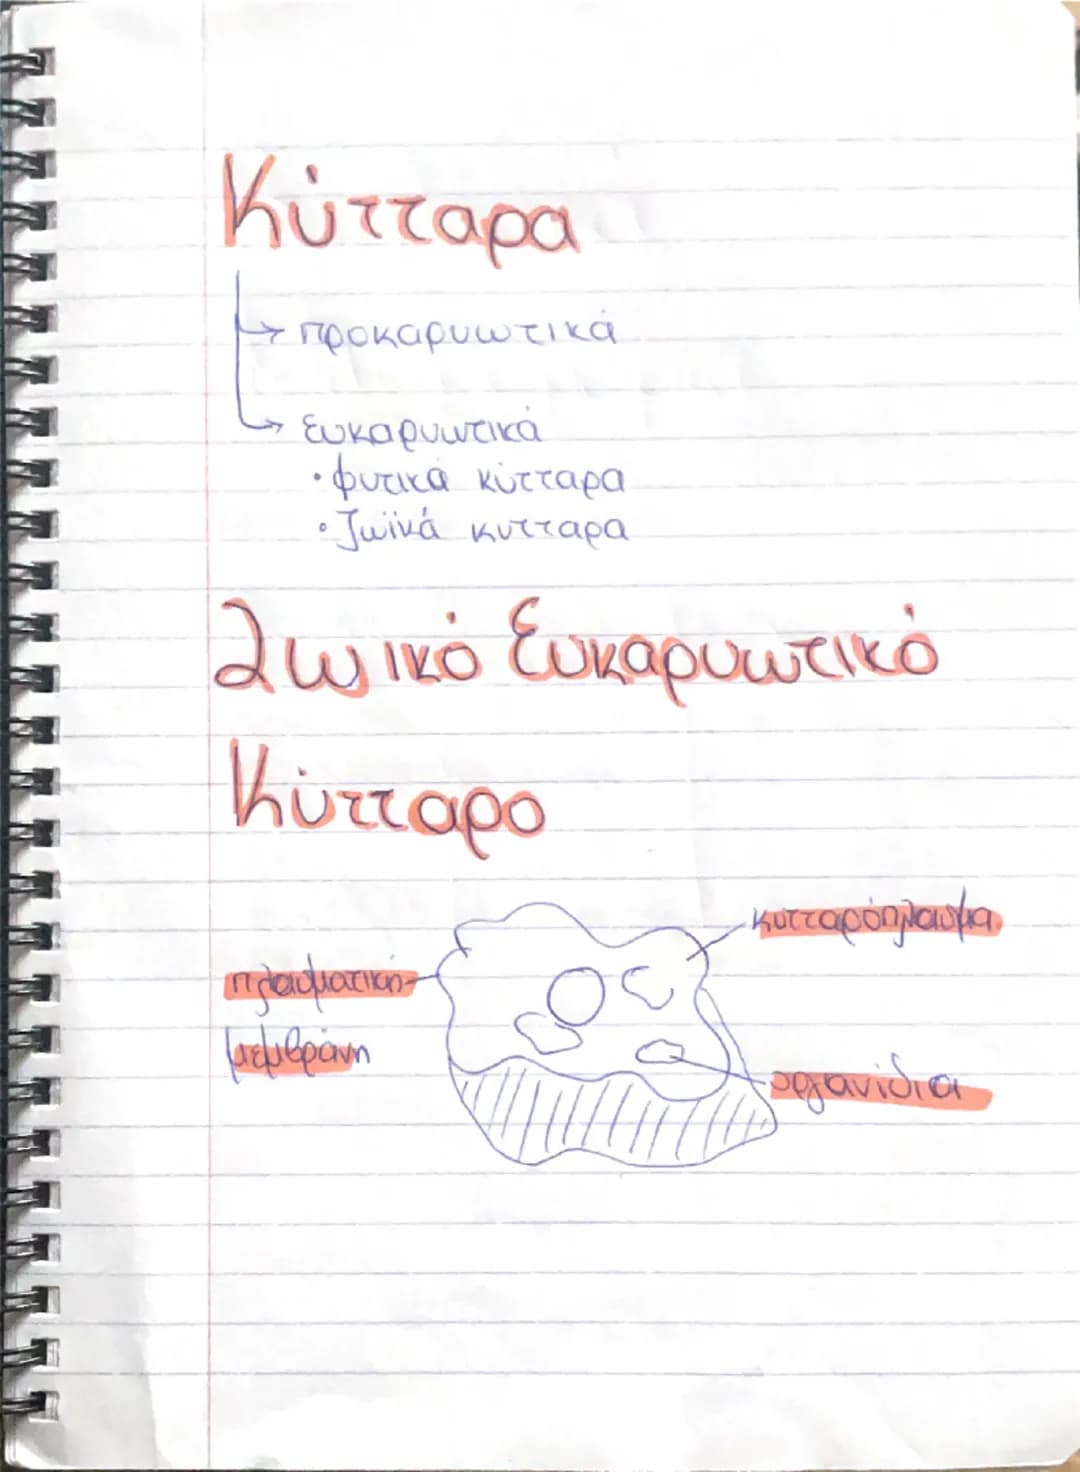 Κύτταρα
προκαρυωτικά
ευκαρυωτικά
• φυτικά κύτταρα
• Ζωϊκά κυτταρα
Ζωικό Ευκαρυωτικό
Κύτταρο
κυτταρόπλασμα
πλασματική
μεμβράνη
οργανίδια